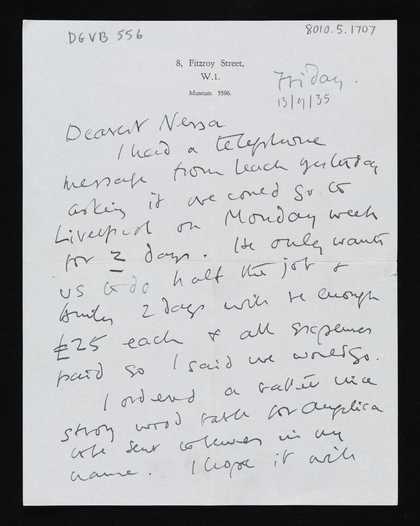 DGVB 556
8010.5.1707
8, Fitzroy Street,
W.1.
Museum 5596.
Friday.
13/9/35
Dearest Nessa
I had a telephone
message from Leach yesterday
asking if we could go to
Liverpool on Monday week
for 2 days. He only wants
us to do half the job &
thinks 2 days will be enough
£25 each & all expenses
paid so I said we would go.
I ordered a rather nice
strong wood table for Angelica
to be sent to Lewes in my
name. I hope it will